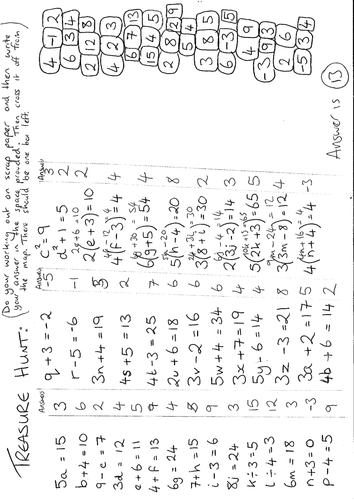 TREASURE HUNT:
(Do your working out on scrap paper and then write
your answer in the space provided. Then cross it off from
the map. There should be one box left.)
Answer
5a = 15 3
b + 4 = 10 6
9 - c = 7 2
3d = 12 4
e + 6 = 11 5
6g = 24 4
7 + h = 15 8
i - 3 = 6 9
8j = 24 3
k ÷ 3 = 5 15
l ÷ 4 = 3 12
6m = 18 3
n + 3 = 0 -3
p - 4 = 5 9
Answer
q + 3 = -2 -5
r - 5 = -6 -1
3n + 4 = 19 5
4s + 5 = 13 2
4t - 3 = 25 7
2u + 6 = 18 6
3v - 2 = 16 6
5w + 4 = 34 6
3x + 7 = 19 4
5y - 6 = 14 4
3z - 3 = 21 8
3a + 2 = 17 5
4b + 6 = 14 2
Answer
c² = 9 3
d² + 1 = 5 2
2e + 6 = 10
2(e + 3) = 10 2
4f - 12 = 4
4(f - 3) = 4 4
6g + 30 = 54
6(g + 5) = 54 4
5h - 20
5(h - 4) = 20 8
24 + 3i = 30
3(8 + i) = 30 2
6j - 4 = 14
2(3j - 2) = 14 3
10k + 15 = 65
5(2k + 3) = 65 5
9m - 24 = 12
3(3m - 8) = 12 4
4n + 16 = 4
4(n + 4) = 4 -3
4 -1 2
6 3 4
2 12 8
4 2 3
6 7 13
15 4 5
2 8 2 9
5 4
3 8 5
6 -3 5
4 9
-3 9 3
2 6
-5 3 4
Answer is 13